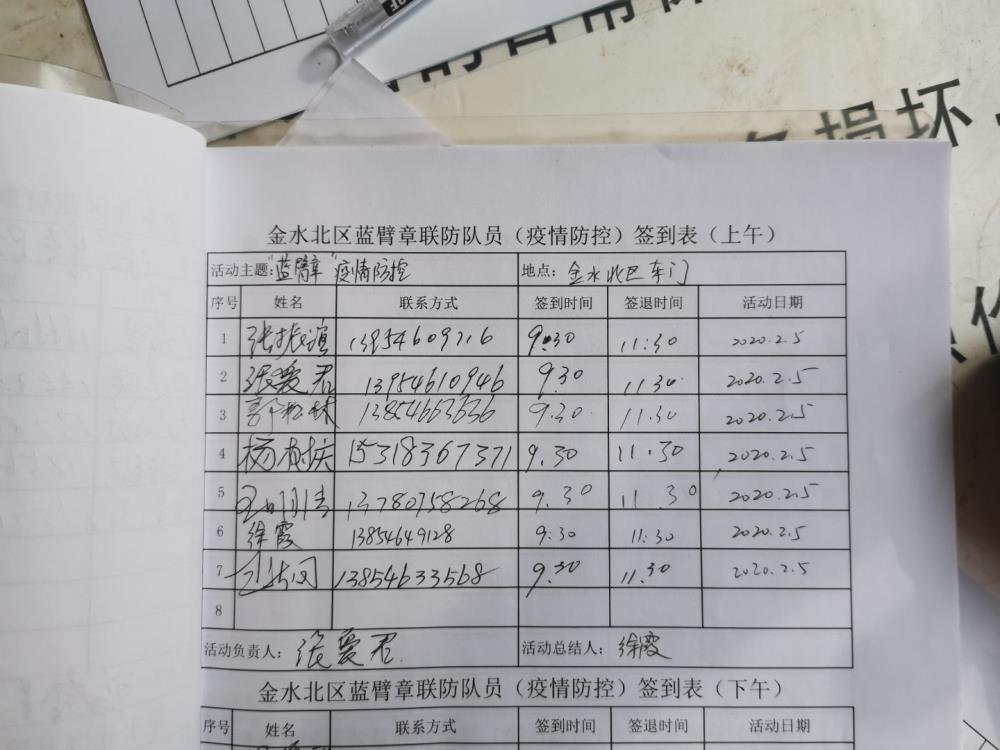 损坏
金水北区蓝臂章联防队员（疫情防控）签到表（上午）
活动主题：“蓝臂章”疫情防控 地点：金水北区车门
序号 姓名 联系方式 签到时间 签退时间 活动日期
1 张振谊 13954609716 9:30 11:30 2020.2.5
2 张爱君 13954610946 9.30 11.30 2020.2.5
3 13854663636 9.30 11.30 2020.2.5
4 杨 15318367371 9.30 11.30 2020.2.5
5 13780758268 9.30 11.30 2020.2.5
6 徐霞 13854649128 9:30 11:30 2020.2.5
7 13854633568 9.30 11.30 2020.2.5
8
活动负责人：张爱君 活动总结人：徐霞
金水北区蓝臂章联防队员（疫情防控）签到表（下午）
序号 姓名 联系方式 签到时间 签退时间 活动日期